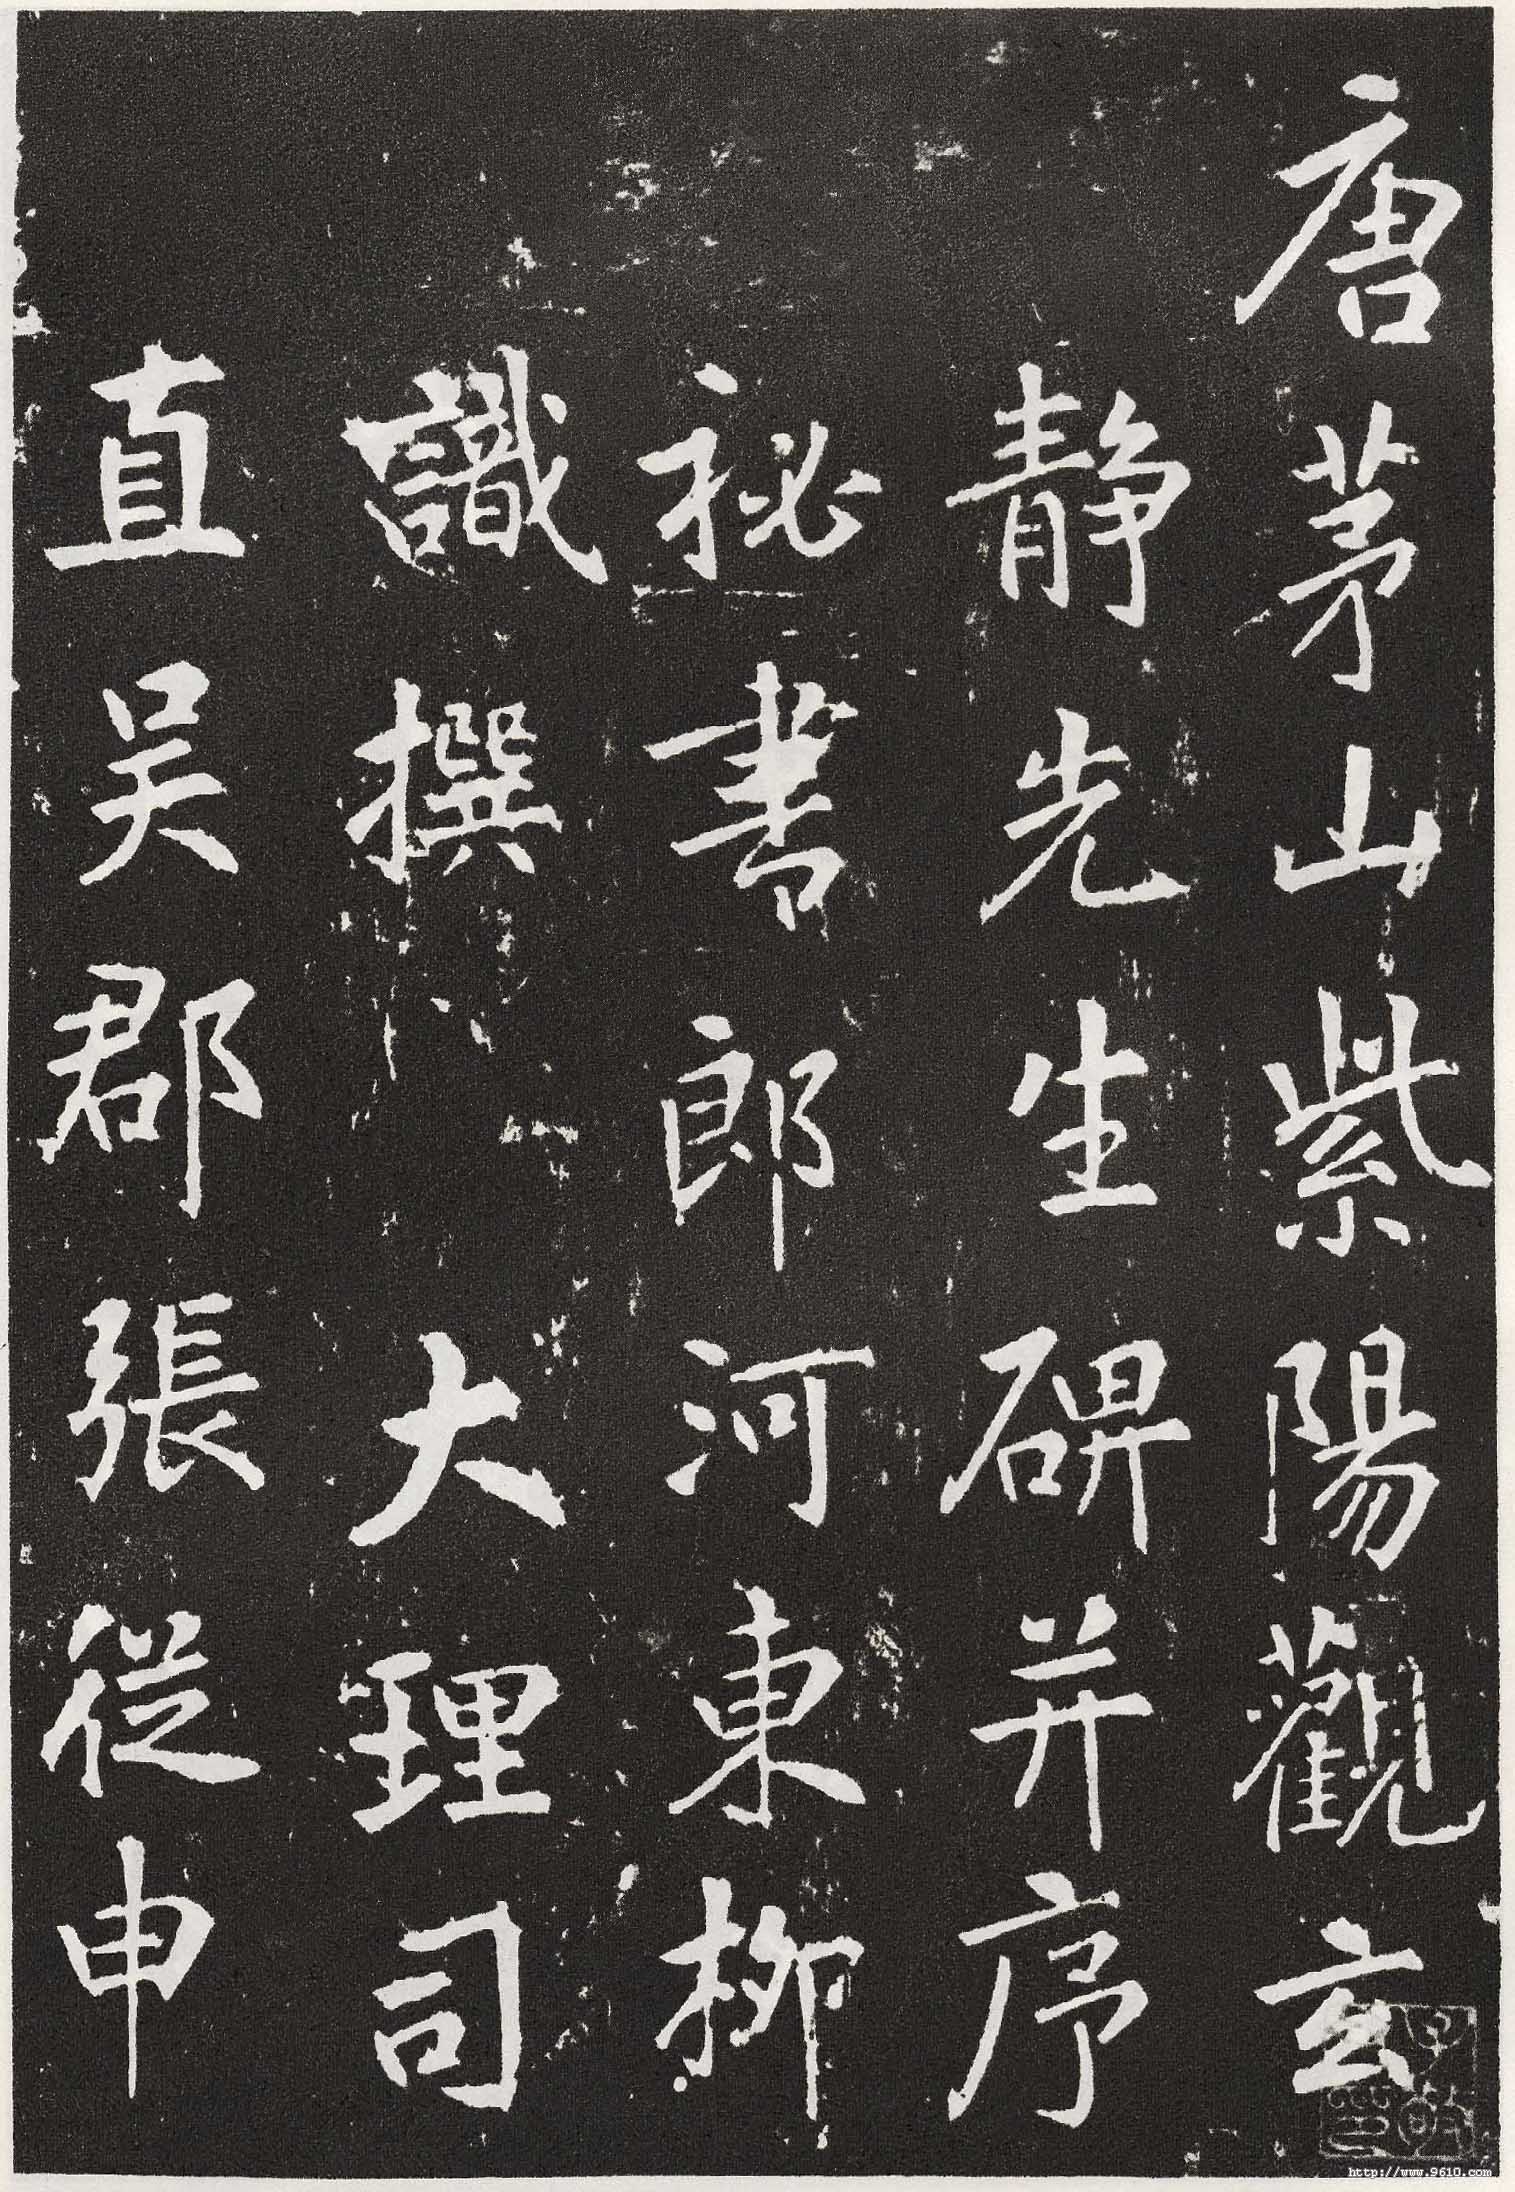 唐茅山紫陽觀玄
静先生碑并序
祕書郎河東柳
識撰大理司
直吴郡張從申
http://www.9610.com